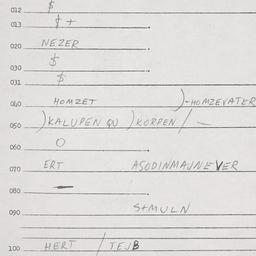 012 $
013 $ +
020 NEZER
030 $
031 $
040 HOMZET )-HOMZEVATER
050 )KALUPEN QU )KORPEN / –
060 O
070 ERT ASODINMAJNEVER
080 –
090 S+MULN
100 HERT / TEJB